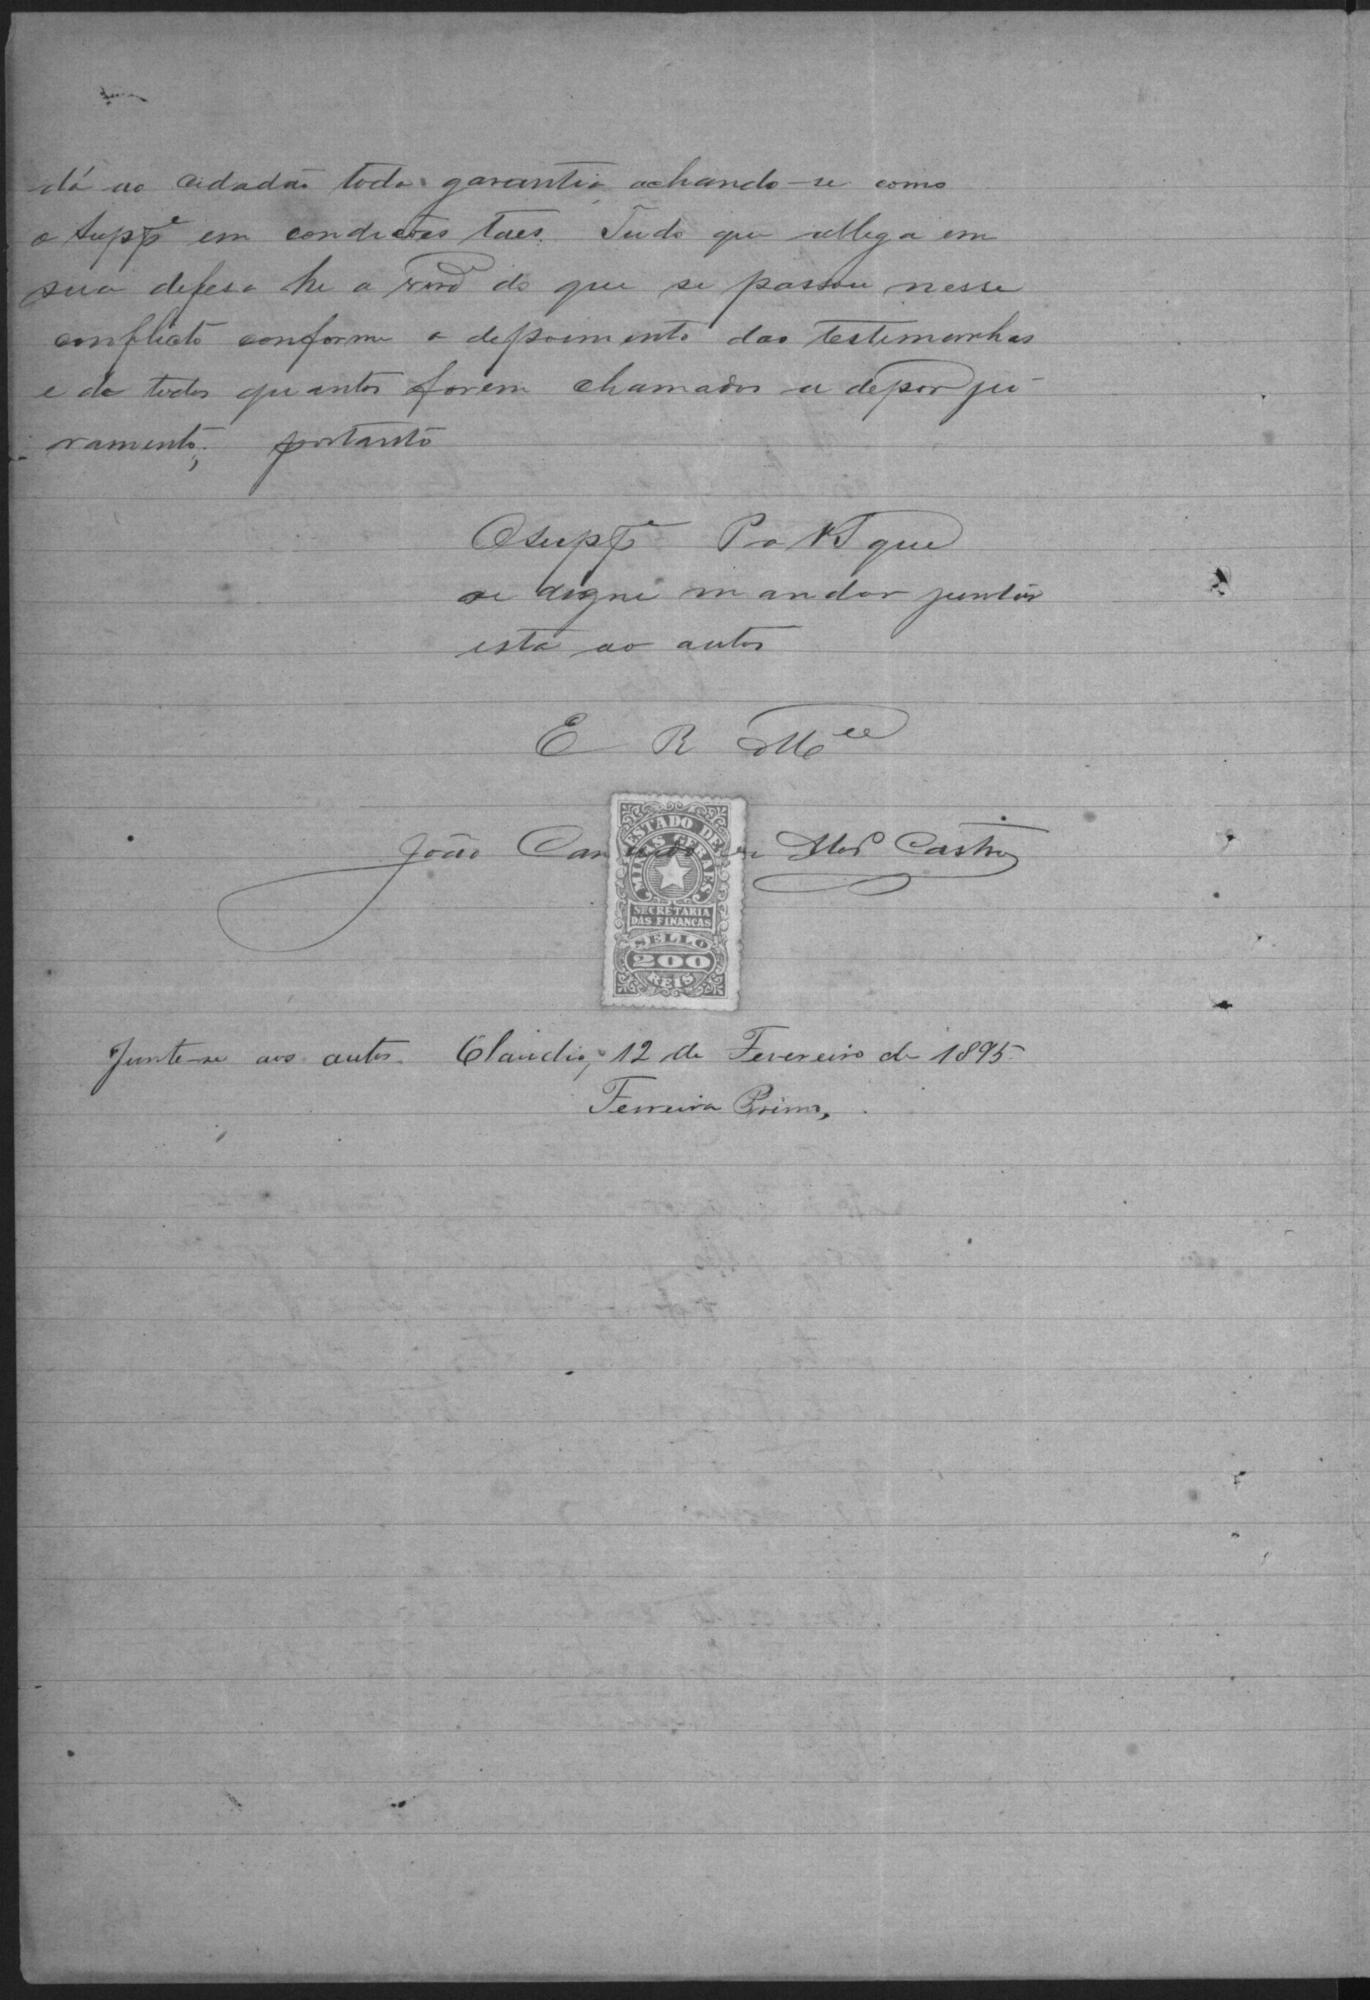 dá ao cidadão toda garantia achando-se como
o Suppe em condicões taes. Tudo que allega em
sua defesa he a verde do que se passou nesse
conflicto conforme o depoimento das testimonhas
e de todos quantos forem chamados a depor ju-
ramento; portanto
O Suppe P a VS que
se digne mandar juntar
esta ao autos
E R Mce
João Castro
ESTADO DE
MINAS GERAES
SECRETARIA
DAS FINANCAS
SELLO
200
REIS
Junte-se aos autos. Claudio, 12 de Fevereiro de 1895.
Ferreira Primo,